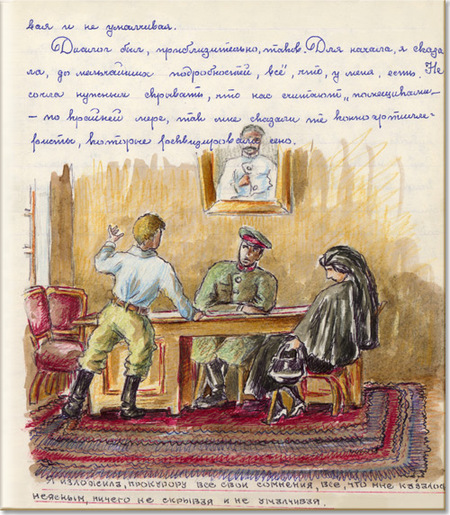 вая и не умалчивая.
Диалог был, приблизительно, таков. Для начала, я сказа
ла, до мельчайших подробностей, всё, что, у меня, есть. Не
сочла нужным скрывать, что нас считают „помещиками"
– по крайней мере, так мне сказали те конно-артилле-
ристы, которые реквизировали сено.
Я изложила, прокурору все свои сомнения, всё, что мне казалось
неясным, ничего не скрывая и не умалчивая.